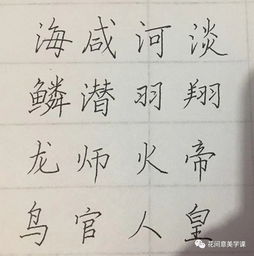 海咸河淡
鳞潜羽翔
龙师火帝
鸟官人皇
花间意美学课